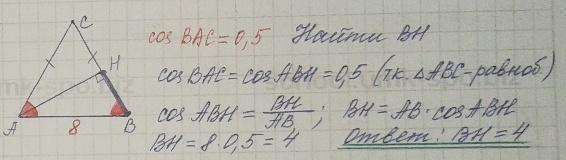 C
H
A
8
B
cos BAC = 0,5 Найти BH
cos BAC = cos ABH = 0,5 (т.к. △ABC - равноб.)
cos ABH = BH/AB ; BH = AB · cos ABH
BH = 8 · 0,5 = 4 Ответ: BH = 4